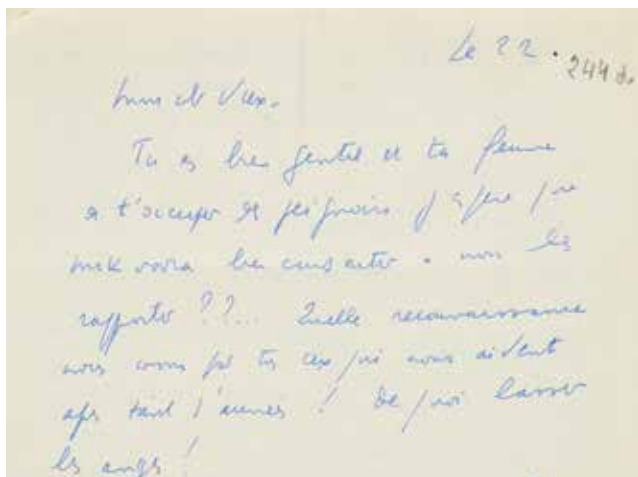 Le 22.
Vieux.
Tu es bien gentil et ta femme
de t'occuper de peignoirs j'espère que
voudra bien nous les
rapporter ??... Quelle reconnaissance
nous avons pr ts ceux qui nous aident
après tant d'années ! de quoi lasser
les anges !